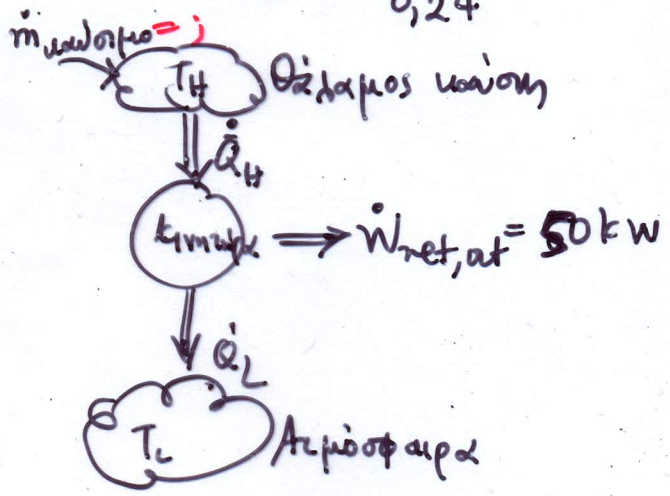 0,24
ṁκαύσιμο = ;
T_H Θάλαμος καύση
Q̇_H
κινητήρα ⇒ Ẇ_net,out = 50 kW
Q̇_L
T_L Ατμόσφαιρα